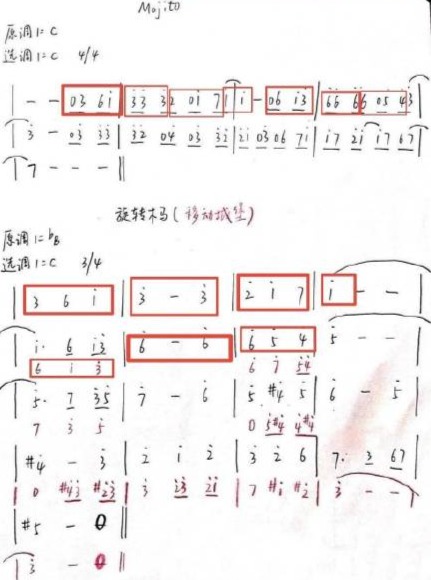 Mojito
原调 1=C
选调 1=C 4/4
| - - 03 6i | 33 3 2 01 7 | 1 - 06 i3 | 66 6 6 05 43 |
| 3 - 03 33 | 32 04 03 32 | 2i 03 06 7i | i7 2i i7 67 |
| 7 - - - ‖
旋转木马(移动城堡)
原调 1=bB
选调 1=C 3/4
| 3 6 i | 3 - 3 | 2 i 7 | i - - |
| i· 6 i3 | 6 - 6 | 6 5 4 | 5 - - |
6 i 3 6 7 54
| 5· 7 35 | 7 - 6 | 5 #4 5 | 6 - 5 |
7 3 5 0 5#4 4#4
| #4 - 3 | 2 i 2 | 3 2 6 | 7· 3 67 |
| 0 #43 #23 | 3 23 2i | 7 #i #2 | 3 - - |
| #5 - 0 ‖
| 3 - 0 ‖